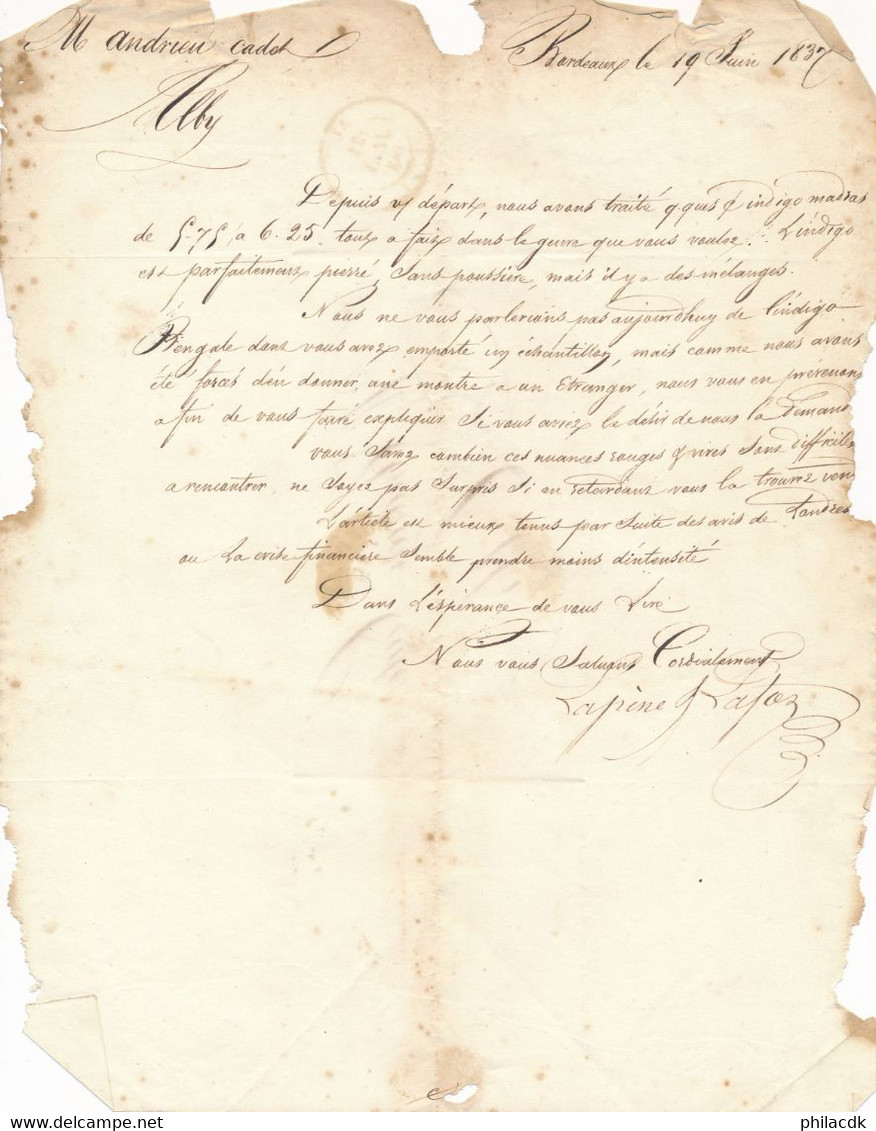 M andrieu cadet
Bordeaux le 19 Juin 1837
Alby
Depuis v/ départ, nous avons traité qques indigo madras
de 5-75, a 6.25. tout a fait dans le genre que vous voulez. L'indigo
est parfaitement pierré, sans poussière, mais il y a des mélanges.
Nous ne vous parlerions pas aujourdhuy de l'indigo
Bengale dont vous avez emporté un échantillon, mais comme nous avons
été forcés d'en donner, une montre a un Etranger, nous vous en prévenons
afin de vous faire expliquer si vous aviez le désir de nous la demand
vous savez combien ces nuances rouges & vives sont difficiles
a rencontrer, ne soyez pas surpris si en retardant vous la trouvez ven
L'article est mieux tenus par suite des avis de Londres
ou la crise financière semble prendre moins d'intensité
Dans l'espérance de vous lire
Nous vous saluons Cordialement
Lapène & Lafon
philacdk
www.delcampe.net